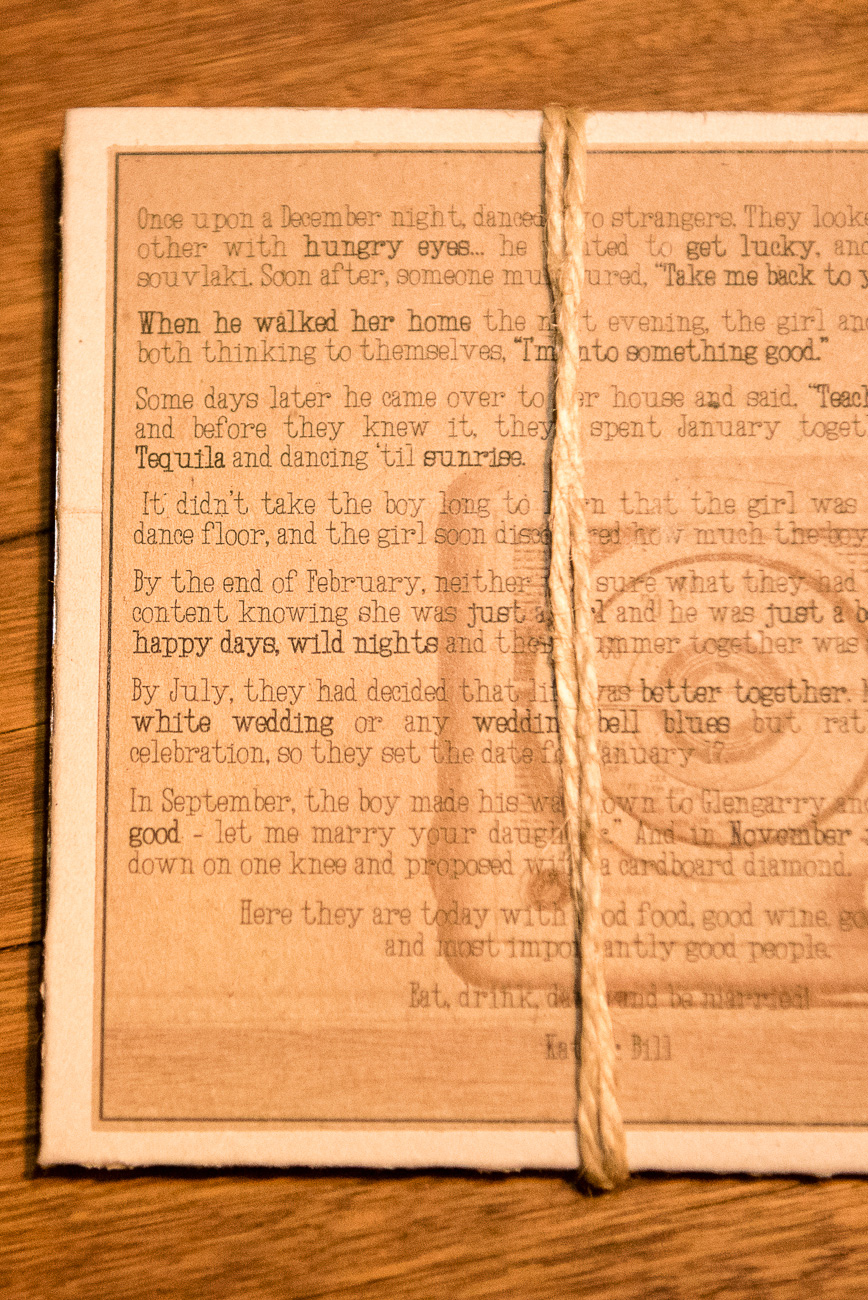 Once upon a December night, danced strangers. They
other with hungry eyes... he to get lucky,
souvlaki. Soon after, someone "Take me back to
When he walked her home the evening, the girl
both thinking to themselves, "I'm into something good."
Some days later he came over to her house and said, "Teach
and before they knew it, they spent January
Tequila and dancing 'til sunrise.
It didn't take the boy long to that the girl was
dance floor, and the girl soon how much the boy
By the end of February, neither sure what they had
content knowing she was just and he was just a
happy days, wild nights and together was
By July, they had decided that was better together.
white wedding or any wedding bell blues but
celebration, so they set the date January 17.
In September, the boy made his down to Glengarry
good - let me marry your And in November
down on one knee and proposed with a cardboard diamond.
Here they are today with food, good wine,
and most importantly good people.
Eat, drink, and be married!
Bill